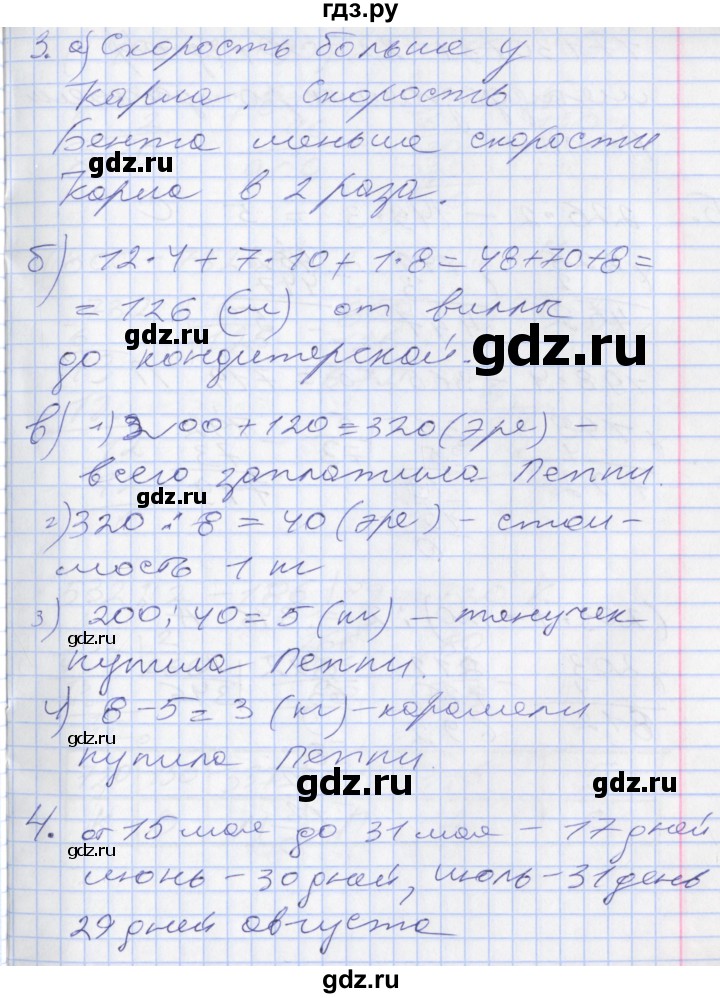 гдз.ру
3. а) Скорость больше у
Карла. Скорость
Бента меньше скорости
gdz.ru
Карла в 2 раза.
б) 12·4+7·10+1·8=48+70+8=
=126 (м) от виллы
gdz.ru
gdz.ru
до кондитерской.
в) 1) 200+120=320 (эре) –
всего заплатила Пеппи.
gdz.ru
2) 320:8=40 (эре) – стои-
мость 1 кг
3) 200:40=5 (кг) – тянучек
gdz.ru
купила Пеппи.
4) 8-5=3 (кг) – карамели
купила Пеппи.
gdz.ru
gdz.ru
4. от 15 мая до 31 мая – 17 дней
gdz.ru
июнь – 30 дней, июль – 31 день
29 дней августа
gdz.ru
gdz.ru
gdz.ru